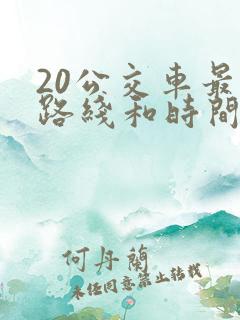 20公交車最
路綫和時間
何丹蘭
未经同意禁止转载